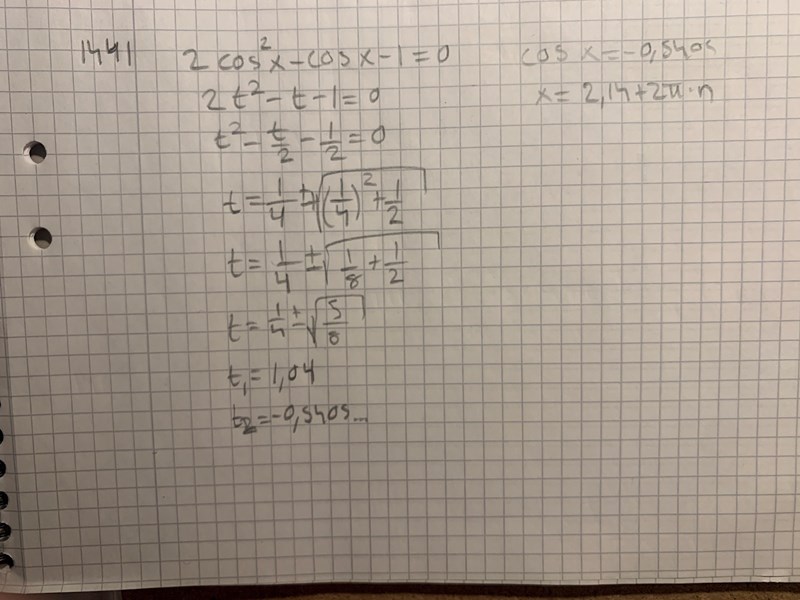 1441 2 cos²x - cos x - 1 = 0
2t² - t - 1 = 0
t² - t/2 - 1/2 = 0
t = 1/4 ± √((1/4)² + 1/2)
t = 1/4 ± √(1/8 + 1/2)
t = 1/4 ± √(5/8)
t₁ = 1,04
t₂ = -0,5405...
cos x = -0,5405
x = 2,14 + 2π · n